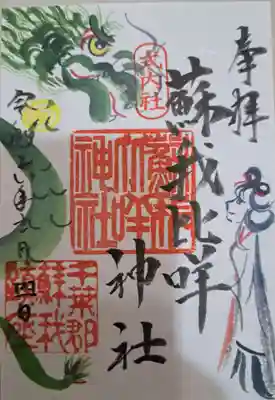 奉拝
式内社
蘇我比咩
神社
蘇我比咩神社
千葉郡
蘇我
令和六年
四日